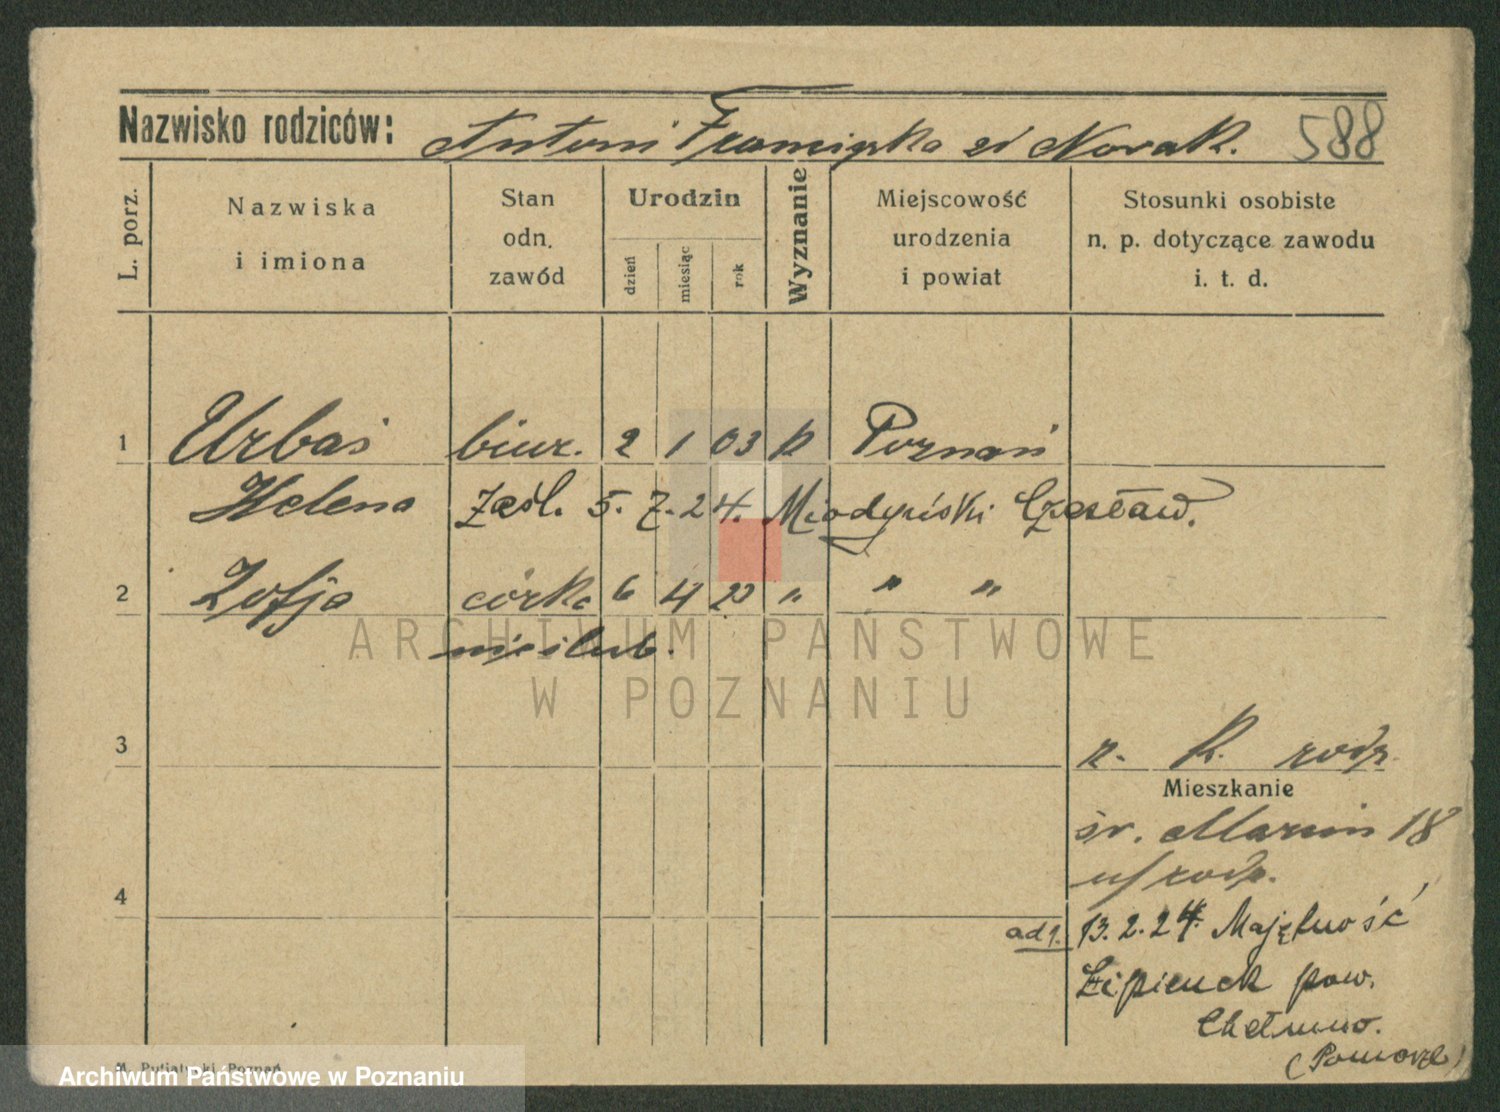 Nazwisko rodziców: Antoni Franciszka z d Nowak. 588
L. porz.
Nazwiska
i imiona
Stan
odn.
zawód
Urodzin
dzień
miesiąc
rok
Wyznanie
Miejscowość
urodzenia
i powiat
Stosunki osobiste
n. p. dotyczące zawodu
i. t. d.
1 Urbaś biur. 2 1 03 k Poznań
Helena Zaśl. 5. 7. 24. Miodyński Czesław.
2 Zofja córka 6 4 23 " " "
nieślub.
ARCHIWUM PAŃSTWOWE
W POZNANIU
3
z. K. rodz.
Mieszkanie
św. Marcin 18
u/ rodz.
4
adq. 13.2.24. Majętność
Lipienek pow.
Chełmno.
(Pomorze)
Poznań
Archiwum Państwowe w Poznaniu